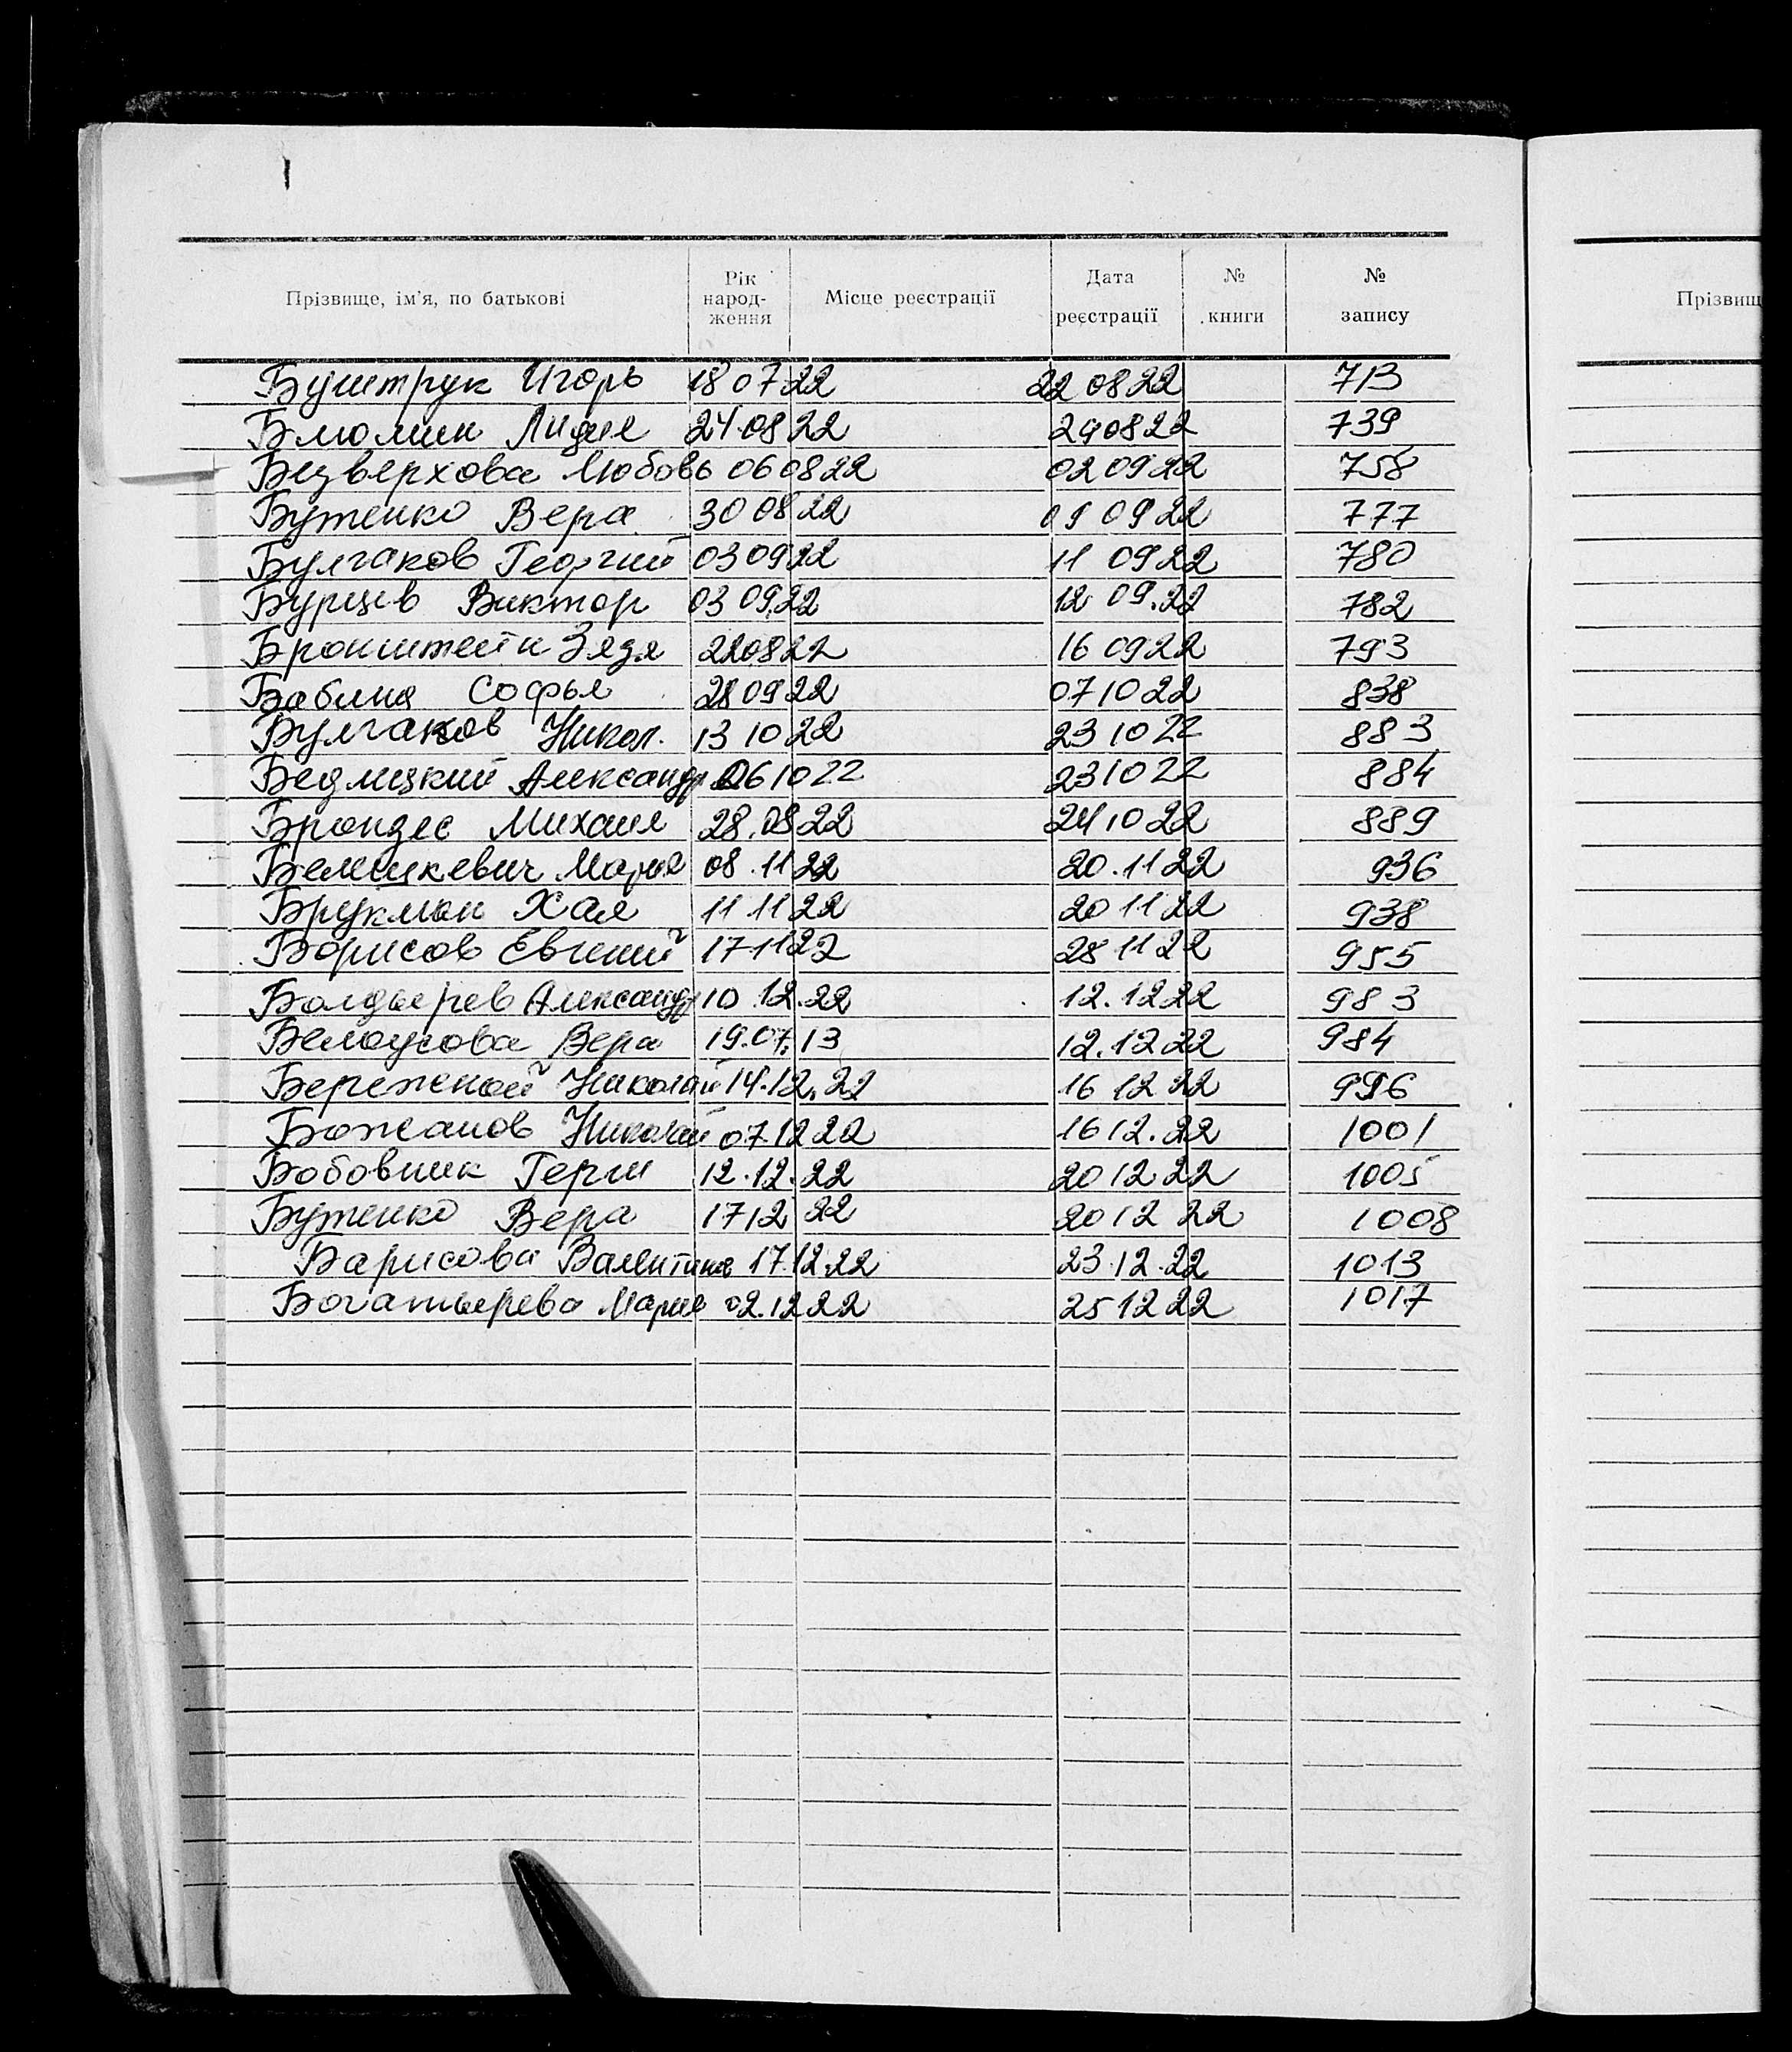 Прізвище, ім'я, по батькові Рік народження Місце реєстрації Дата реєстрації № книги № запису Прізвищ
Буштрук Игорь 18 07 22 22 08 22 713
Блюмин Лидия 24.08 22 29 08 22 739
Безверхова Любовь 06 08 22 02 09 22 758
Бутенко Вера 30 08 22 09 09 22 777
Булгаков Георгий 03 09 22 11 09 22 780
Бурцев Виктор 03 09.22 12 09.22 782
Бронштейн Зядя 22 08 22 16 09 22 793
Баблия Софья 28 09 22 07 10 22 838
Булгаков Никол. 13 10 22 23 10 22 883
Александр 06 10 22 23 10 22 884
Брондес Михаил 28.08 22 24 10 22 889
Мария 08.11 22 20.11 22 936
Брукман Хая 11 11 22 20 11 22 938
Борисов Евгений 17 11 22 28 11 22 955
Болдырев Александр 10.12.22 12.12 22 983
Белоусова Вера 19.07.13 12.12 22 984
Бережной Николай 14.12.22 16 12 22 996
Божанов Николай 07.12 22 16 12.22 1001
Бобовник Герш 12.12.22 20 12 22 1005
Бутенко Вера 17 12 22 20 12 22 1008
Барисова Валентина 17.12.22 23.12.22 1013
Богатырева Мария 02.12 22 25 12 22 1017